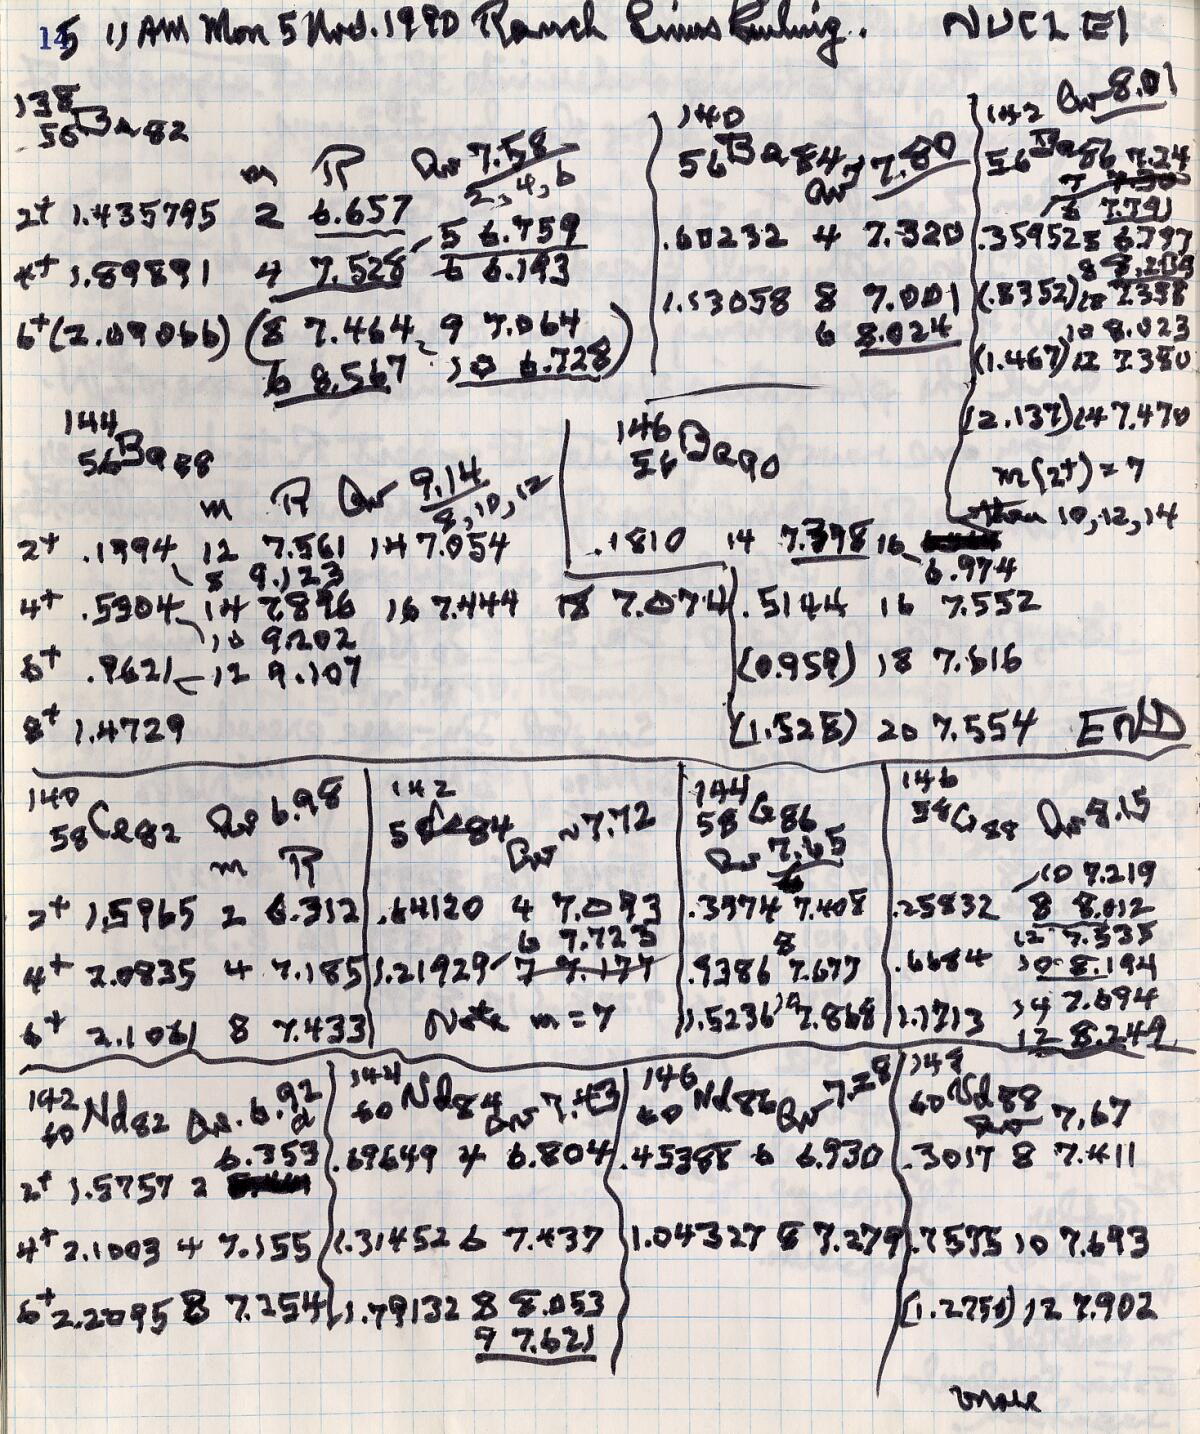 15 11 AM Mon 5 Nov. 1990 Ranch Linus Pauling. NUCLEI
138
56 Ba 82
m R Av 7.58
2, 4, 6
2+ 1.435795 2 6.657 5 6.759
4+ 1.89891 4 7.528 6 6.193
6+ (2.09066) (8 7.464, 9 7.064
6 8.567, 10 6.728)
140
56 Ba 84 Av 7.80
.60232 4 7.320
1.13058 8 7.001
6 8.024
142 Av 8.01
56 Ba 86 7.24
7
6 7.791
.35952 8 6.797
8 8.239
(.8352) 12 7.358
10 8.023
(1.467) 12 7.380
(2.137) 14 7.470
m(2+) = 7
then 10, 12, 14
144
56 Ba 88
m R Av 9.14
8, 10, 12
2+ .1994 12 7.561 14 7.054
8 9.123
4+ .5304 14 7.896 16 7.444 18 7.074
10 9.202
6+ .9621 12 9.107
8+ 1.4729
146
56 Ba 90
.1810 14 7.398 16
6.974
.5144 16 7.552
(0.959) 18 7.616
(1.528) 20 7.554 END
140
58 Ce 82 Av 6.98
m R
2+ 1.5965 2 6.312
4+ 2.0835 4 7.185
6+ 2.1061 8 7.433
142
58 Ce 84 Av 7.72
.64120 4 7.093
6 7.723
1.21929 7 7.177
Note m = 7
144
58 Ce 86
Av 7.65
6
.3974 7.408
8
.9386 7.677
1.5236 10 7.868
146
58 Ce 88 Av 8.15
10 7.219
.25832 8 8.012
12 7.535
.6684 10 8.194
14 7.694
1.1713 12 8.249
142
60 Nd 82 Av. 6.92
6.353
2+ 1.5757 2
4+ 2.1003 4 7.155
6+ 2.2095 8 7.254
144
60 Nd 84 Av 7.43
.69649 4 6.804
1.31452 6 7.437
1.79132 8 8.053
9 7.621
146
60 Nd 86 Av 7.28
.45388 6 6.930
1.04327 8 7.279
148
60 Nd 88
Av 7.67
.3017 8 7.411
.7575 10 7.693
(1.2750) 12 7.902
more